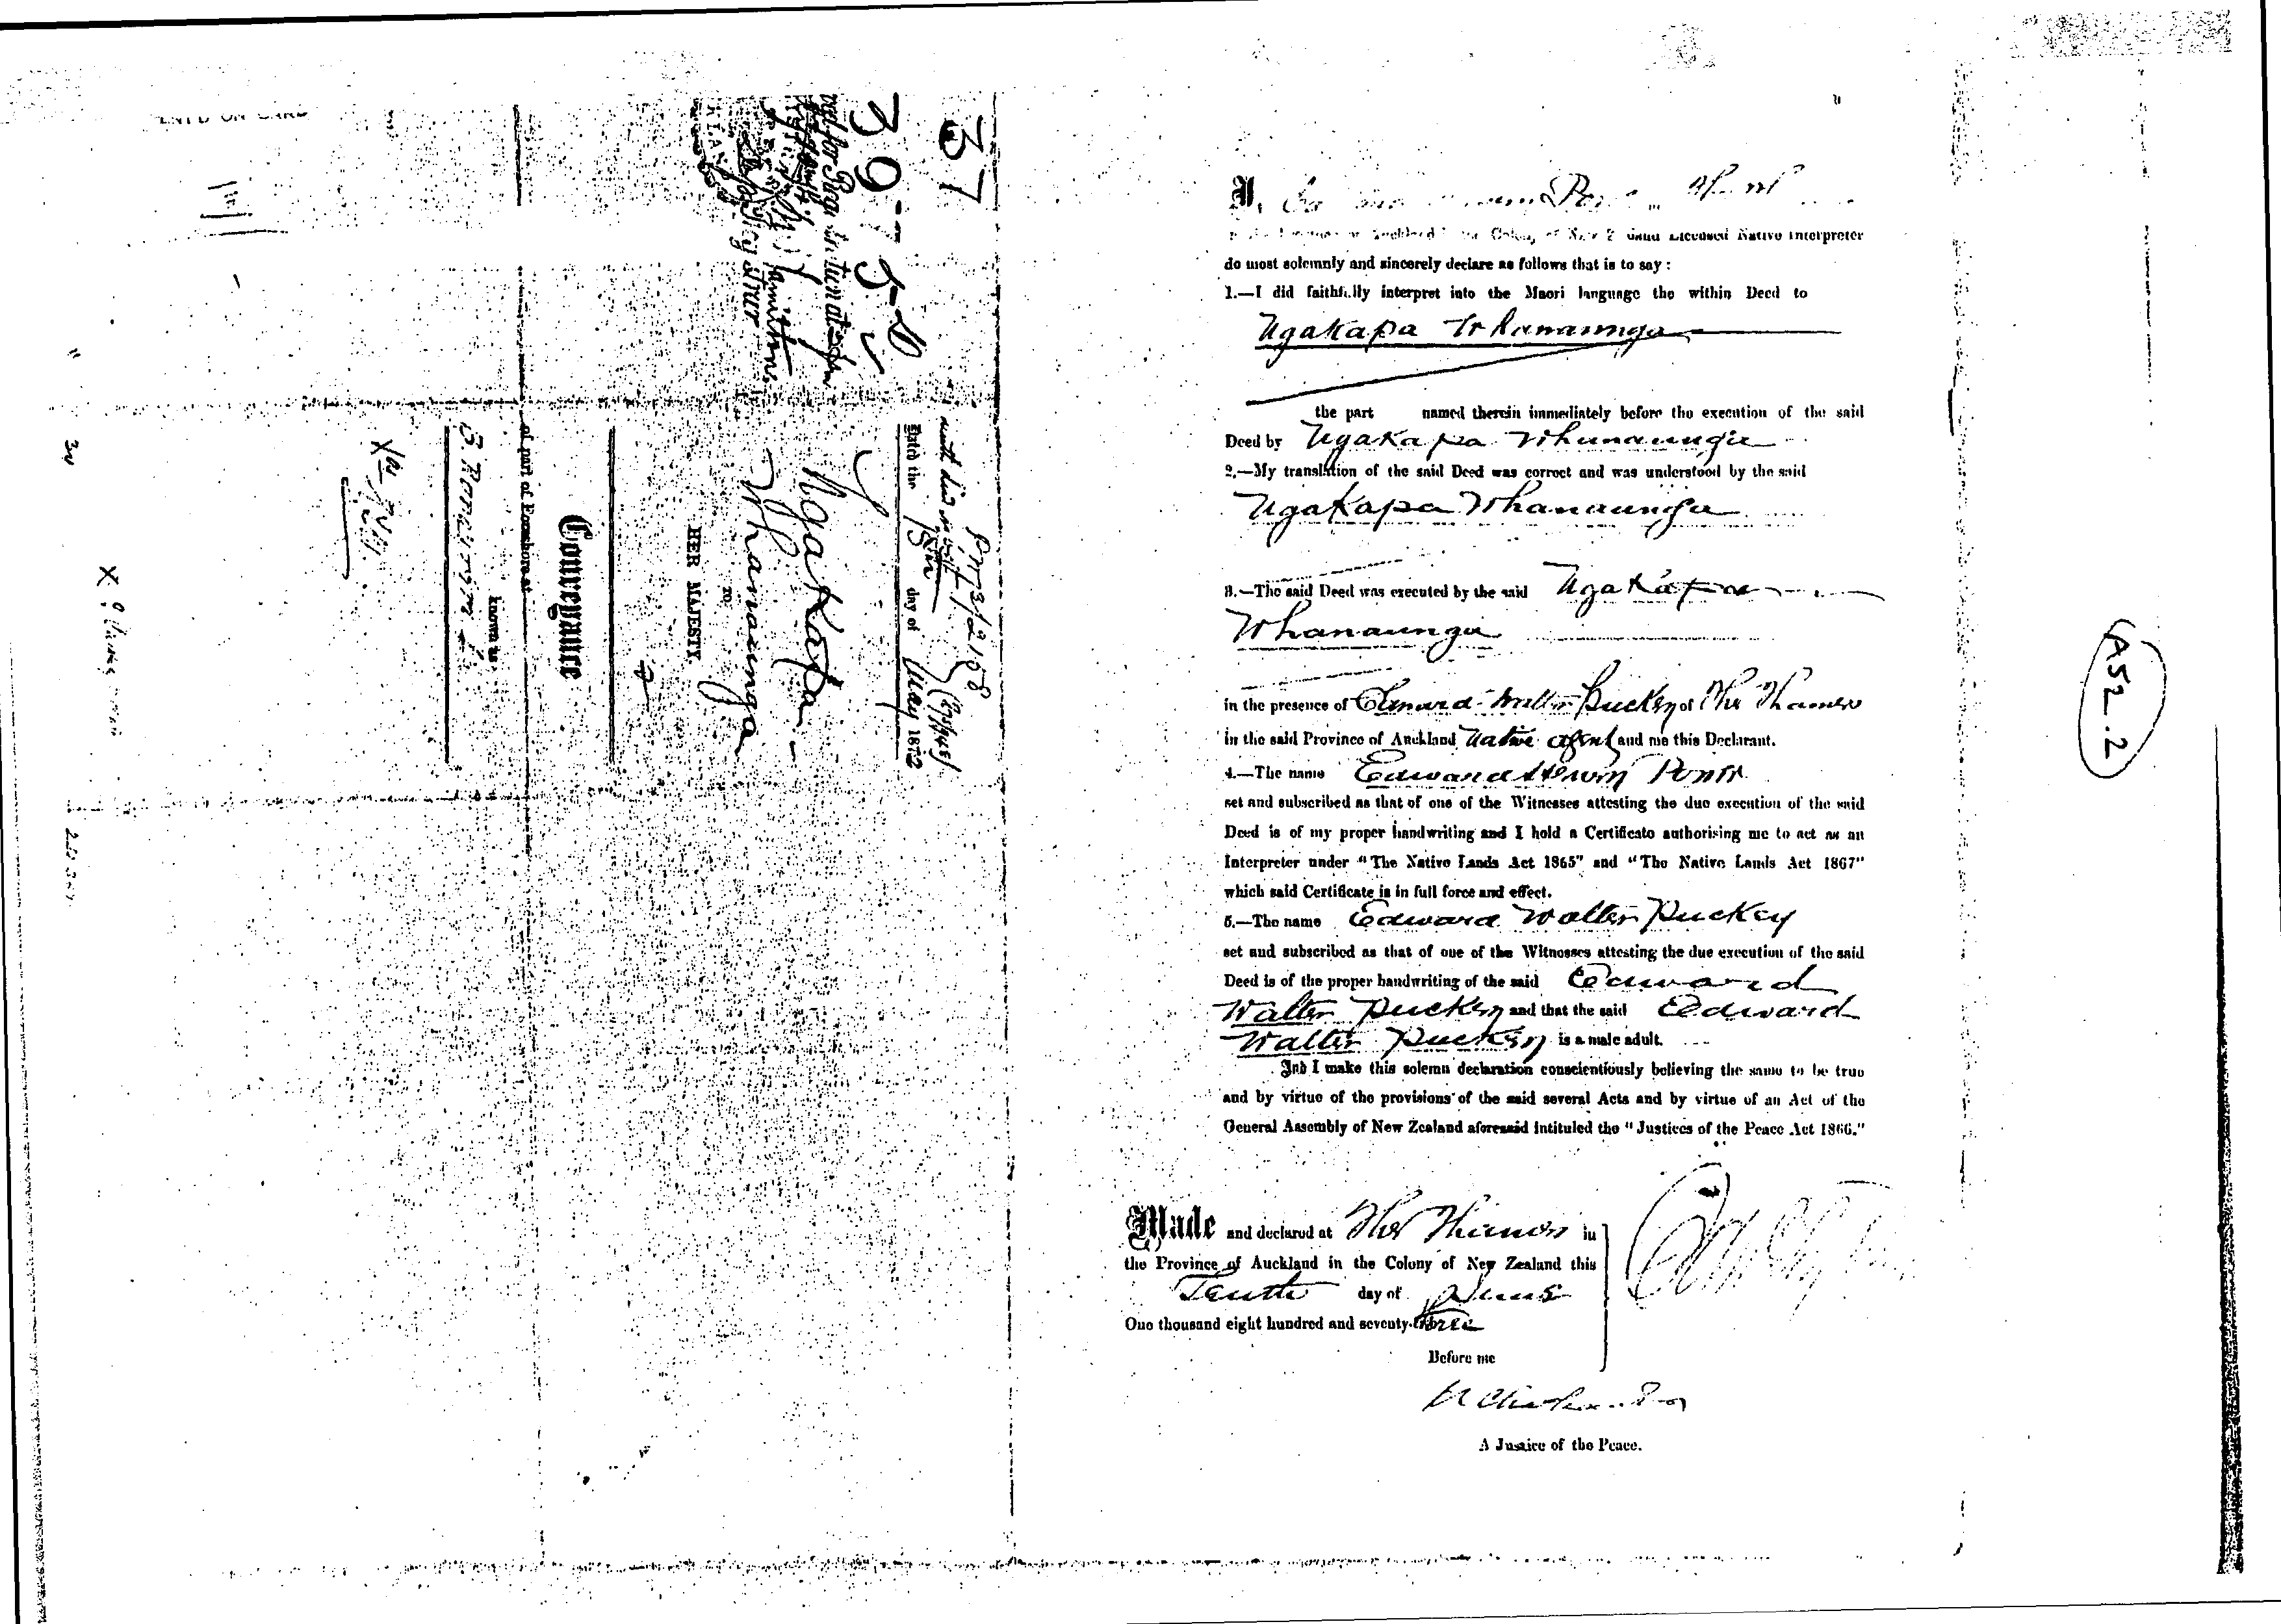 37
39757
Dated the 15th day of May 1872
Ngakapa
Whanaunga
TO
HER MAJESTY.
Conveyance
of part of Foreshore at
known as
I,
Licensed Native Interpreter
do most solemnly and sincerely declare as follows that is to say:
1.—I did faithfully interpret into the Maori language the within Deed to
Ngakapa Whanaunga
the part named therein immediately before the execution of the said
Deed by Ngakapa Whanaunga
2.—My translation of the said Deed was correct and was understood by the said
Ngakapa Whanaunga
3.—The said Deed was executed by the said Ngakapa
Whanaunga
in the presence of Edward Walter Puckey of The Thames
in the said Province of Auckland Native Agent and me this Declarant.
4.—The name Edward
set and subscribed as that of one of the Witnesses attesting the due execution of the said
Deed is of my proper handwriting and I hold a Certificate authorising me to act as an
Interpreter under "The Native Lands Act 1865" and "The Native Lands Act 1867"
which said Certificate is in full force and effect.
5.—The name Edward Walter Puckey
set and subscribed as that of one of the Witnesses attesting the due execution of the said
Deed is of the proper handwriting of the said Edward
Walter Puckey and that the said Edward
Walter Puckey is a male adult.
And I make this solemn declaration conscientiously believing the same to be true
and by virtue of the provisions of the said several Acts and by virtue of an Act of the
General Assembly of New Zealand aforesaid intituled the "Justices of the Peace Act 1866."
Made and declared at The Thames in
the Province of Auckland in the Colony of New Zealand this
Tenth day of June
One thousand eight hundred and seventy-three
Before me
A Justice of the Peace.
A52.2